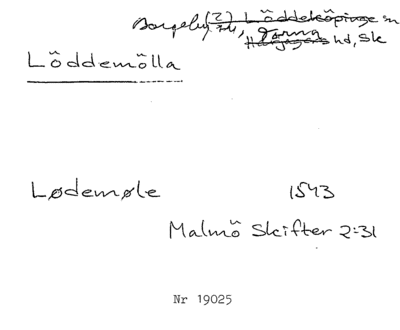 Borgeby (2) Löddeköpinge sn
sn, Torna
Harjagers hd, Sk
Löddemölla
Lødemøle 1543
Malmö Skifter 2:31
Nr 19025